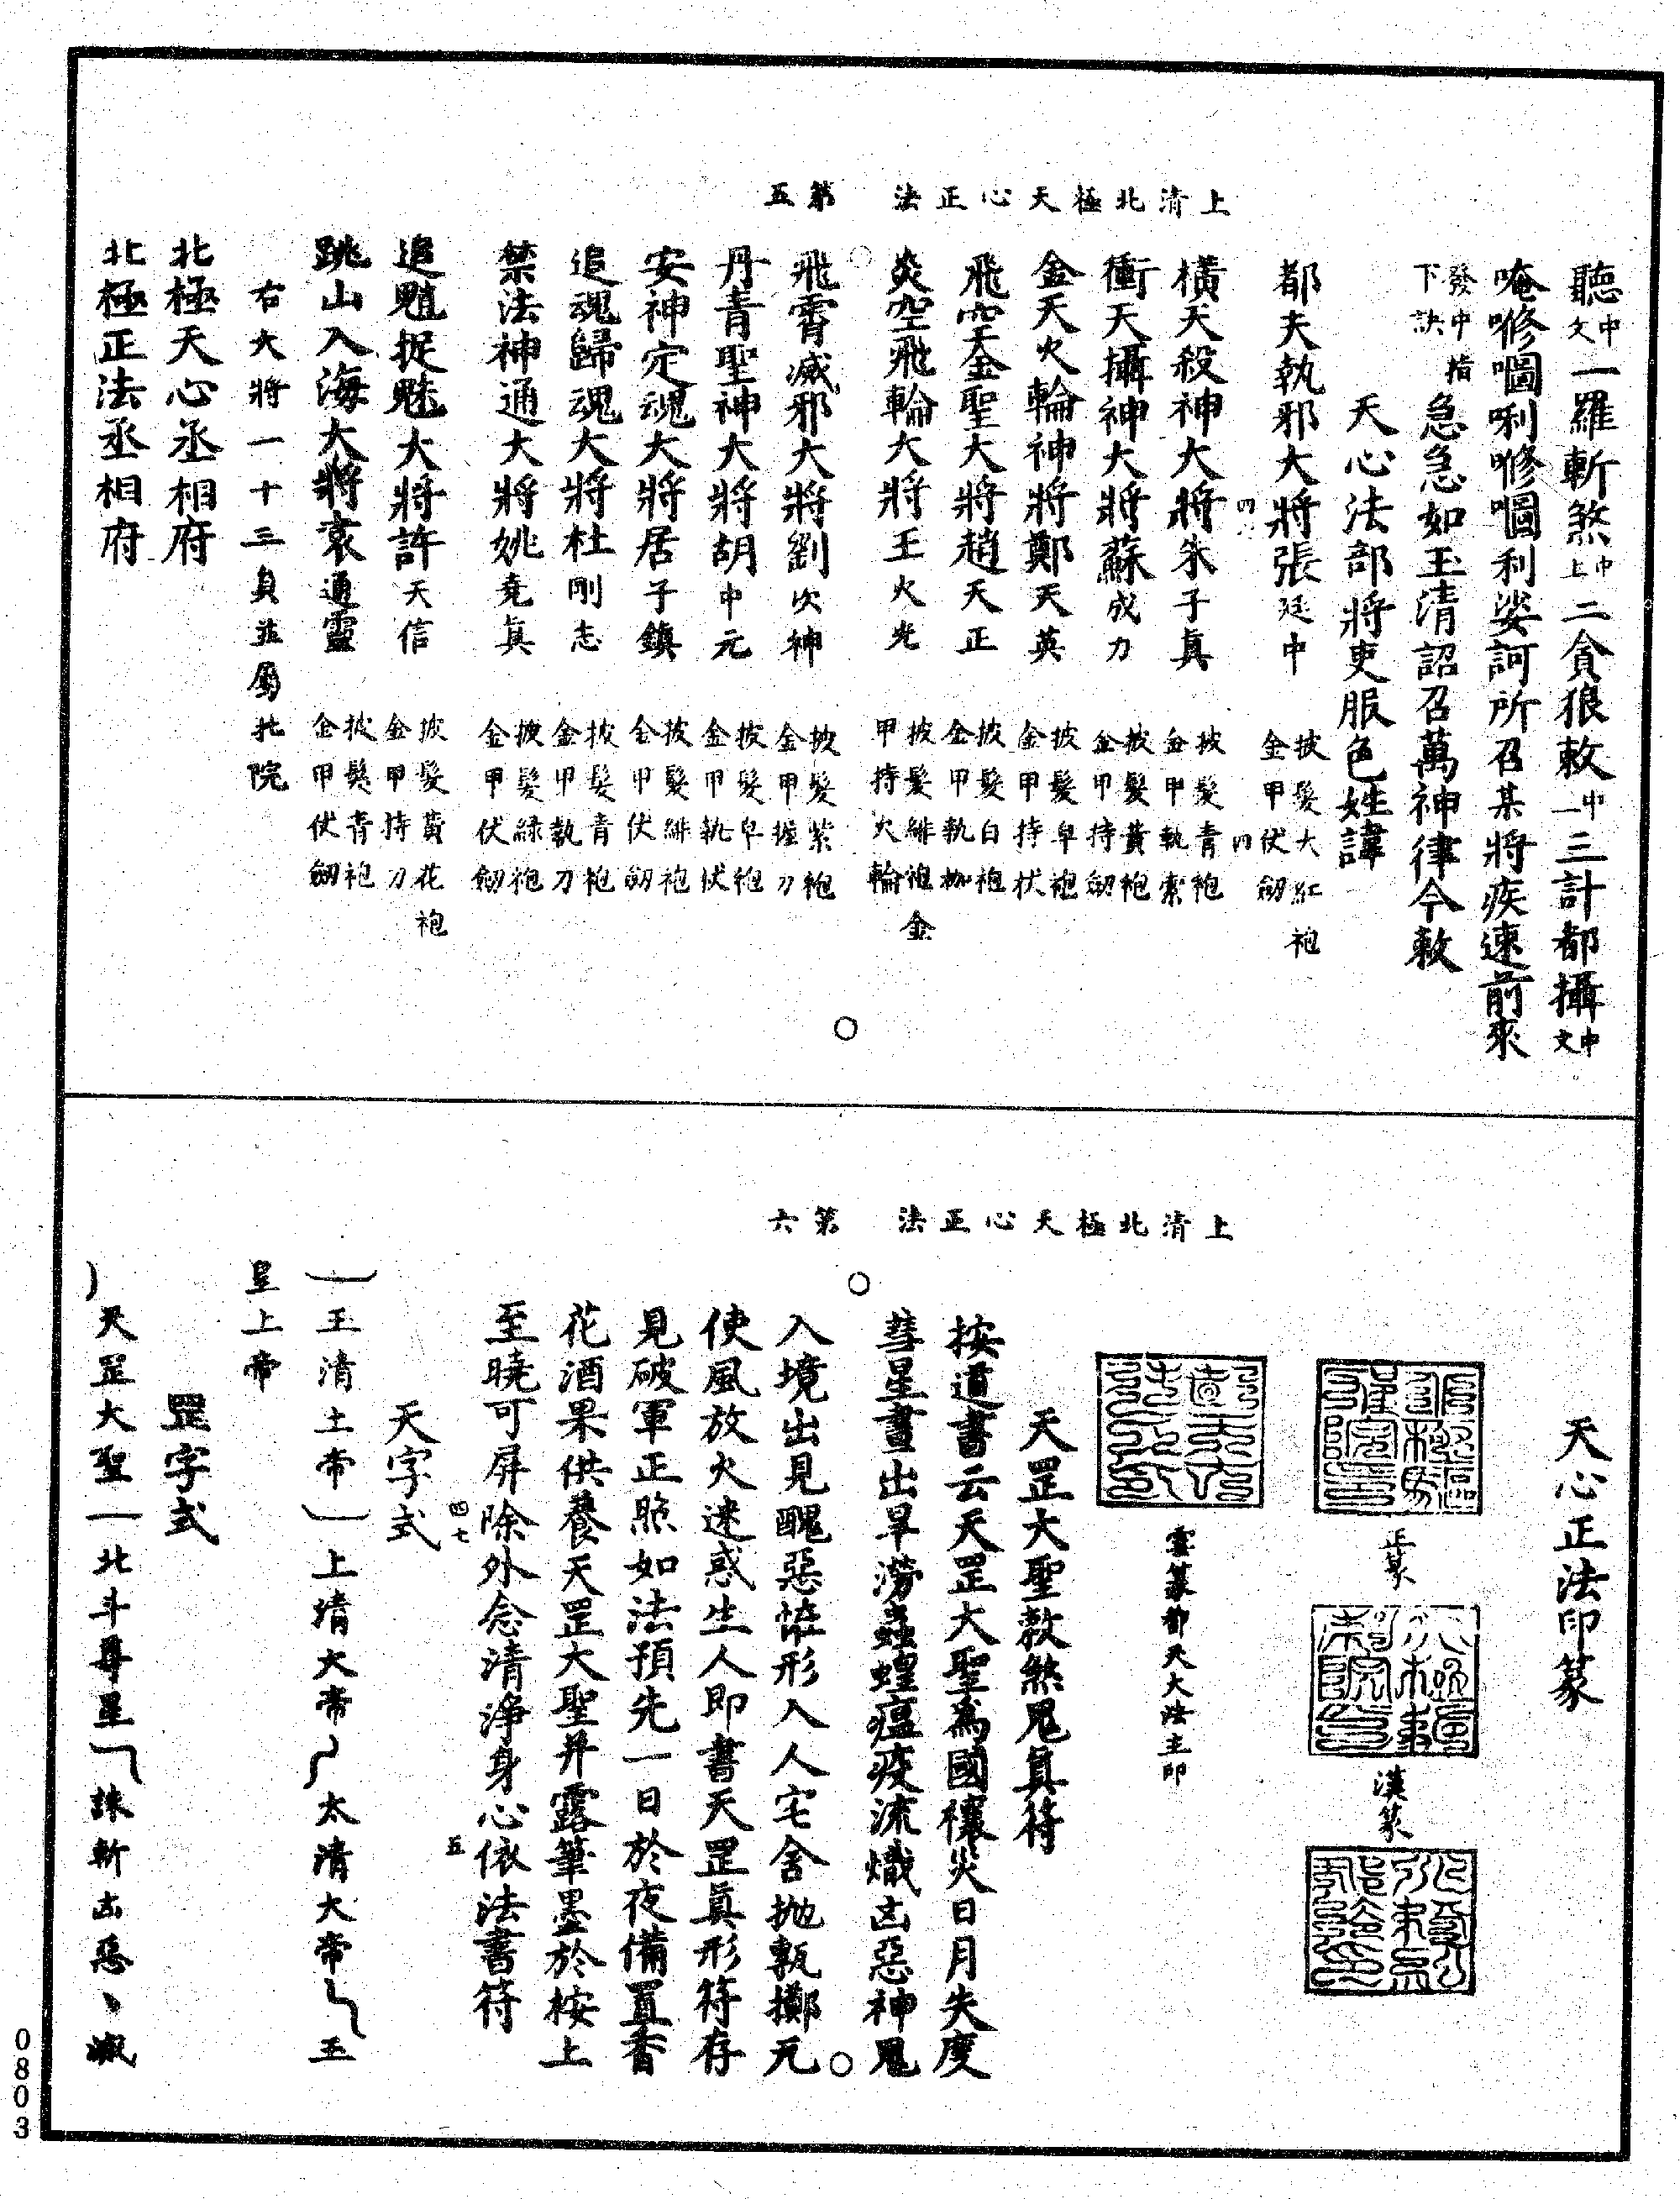 聽中文一羅斬煞中上二貪狼敕中一三計都攝中文
唵㗛㘝唎㗛㘝利娑訶所召某將疾速前來
發中指下訣急急如玉清詔召萬神律令敕
天心法部將吏服色姓諱
都天執邪大將張廷中 披髮大紅袍金甲伏劒
橫天殺神大將朱子真 披髮青袍金甲執索
衝天攝神大將蘇成力 披髮黃袍金甲持劒
金天火輪神將鄭天英 披髮皁袍金甲持杖
飛空金聖大將趙天正 披髮白袍金甲執枷
炎空飛輪大將王火光 披髮緋袍金甲持火輪
上清北極天心正法 第五
飛霄滅邪大將劉次神 披髮紫袍金甲握刀
丹青聖神大將胡中元 披髮皁袍金甲執伏
安神定魂大將居子鎮 披髮緋袍金甲伏劒
追魂歸魂大將杜剛志 披髮青袍金甲執刀
禁法神通大將姚堯真 披髮綠袍金甲伏劒
追魈捉魅大將許天信 披髮黃花袍金甲持刀
跳山入海大將袁通靈 披髮青袍金甲伏劒
右大將一十三員並屬北院
北極天心丞相府
北極正法丞相府
天心正法印篆
正篆
漢篆
雲篆都天大法主印
天罡大聖敕煞鬼真符
按道書云天罡大聖爲國禳災日月失度
彗星晝出旱澇蟲蝗瘟疫流熾凶惡神鬼
上清北極天心正法 第六
入境出見醜惡恠形入人宅舍拋甎擲瓦
使風放火迷惑生人即書天罡真形符存
見破軍正照如法預先一日於夜備置香
花酒果供養天罡大聖并露筆墨於桉上
至曉可屏除外念清淨身心依法書符
天字式
玉清土帝 上清大帝 太清大帝 玉
皇上帝
罡字式
天罡大聖 北斗尊星 誅斬凶惡 滅
0803